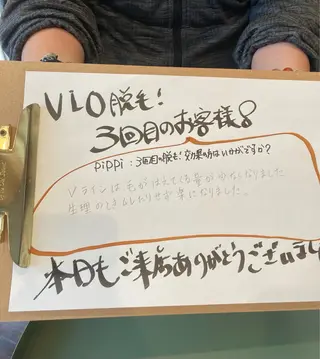 VIO脱毛!
3回目のお客様!
PiPPi:3回目脱毛!効果の方はいかがですか?
Vラインは毛がはえてくる量が少なくなりました
生理のときムレなりせず楽になりました。
本日もご来店ありがとうございまし